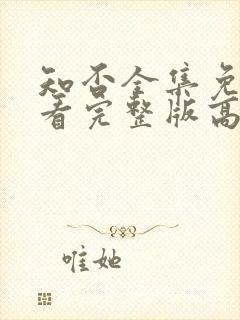 知否全集免
看完整版高
唯她